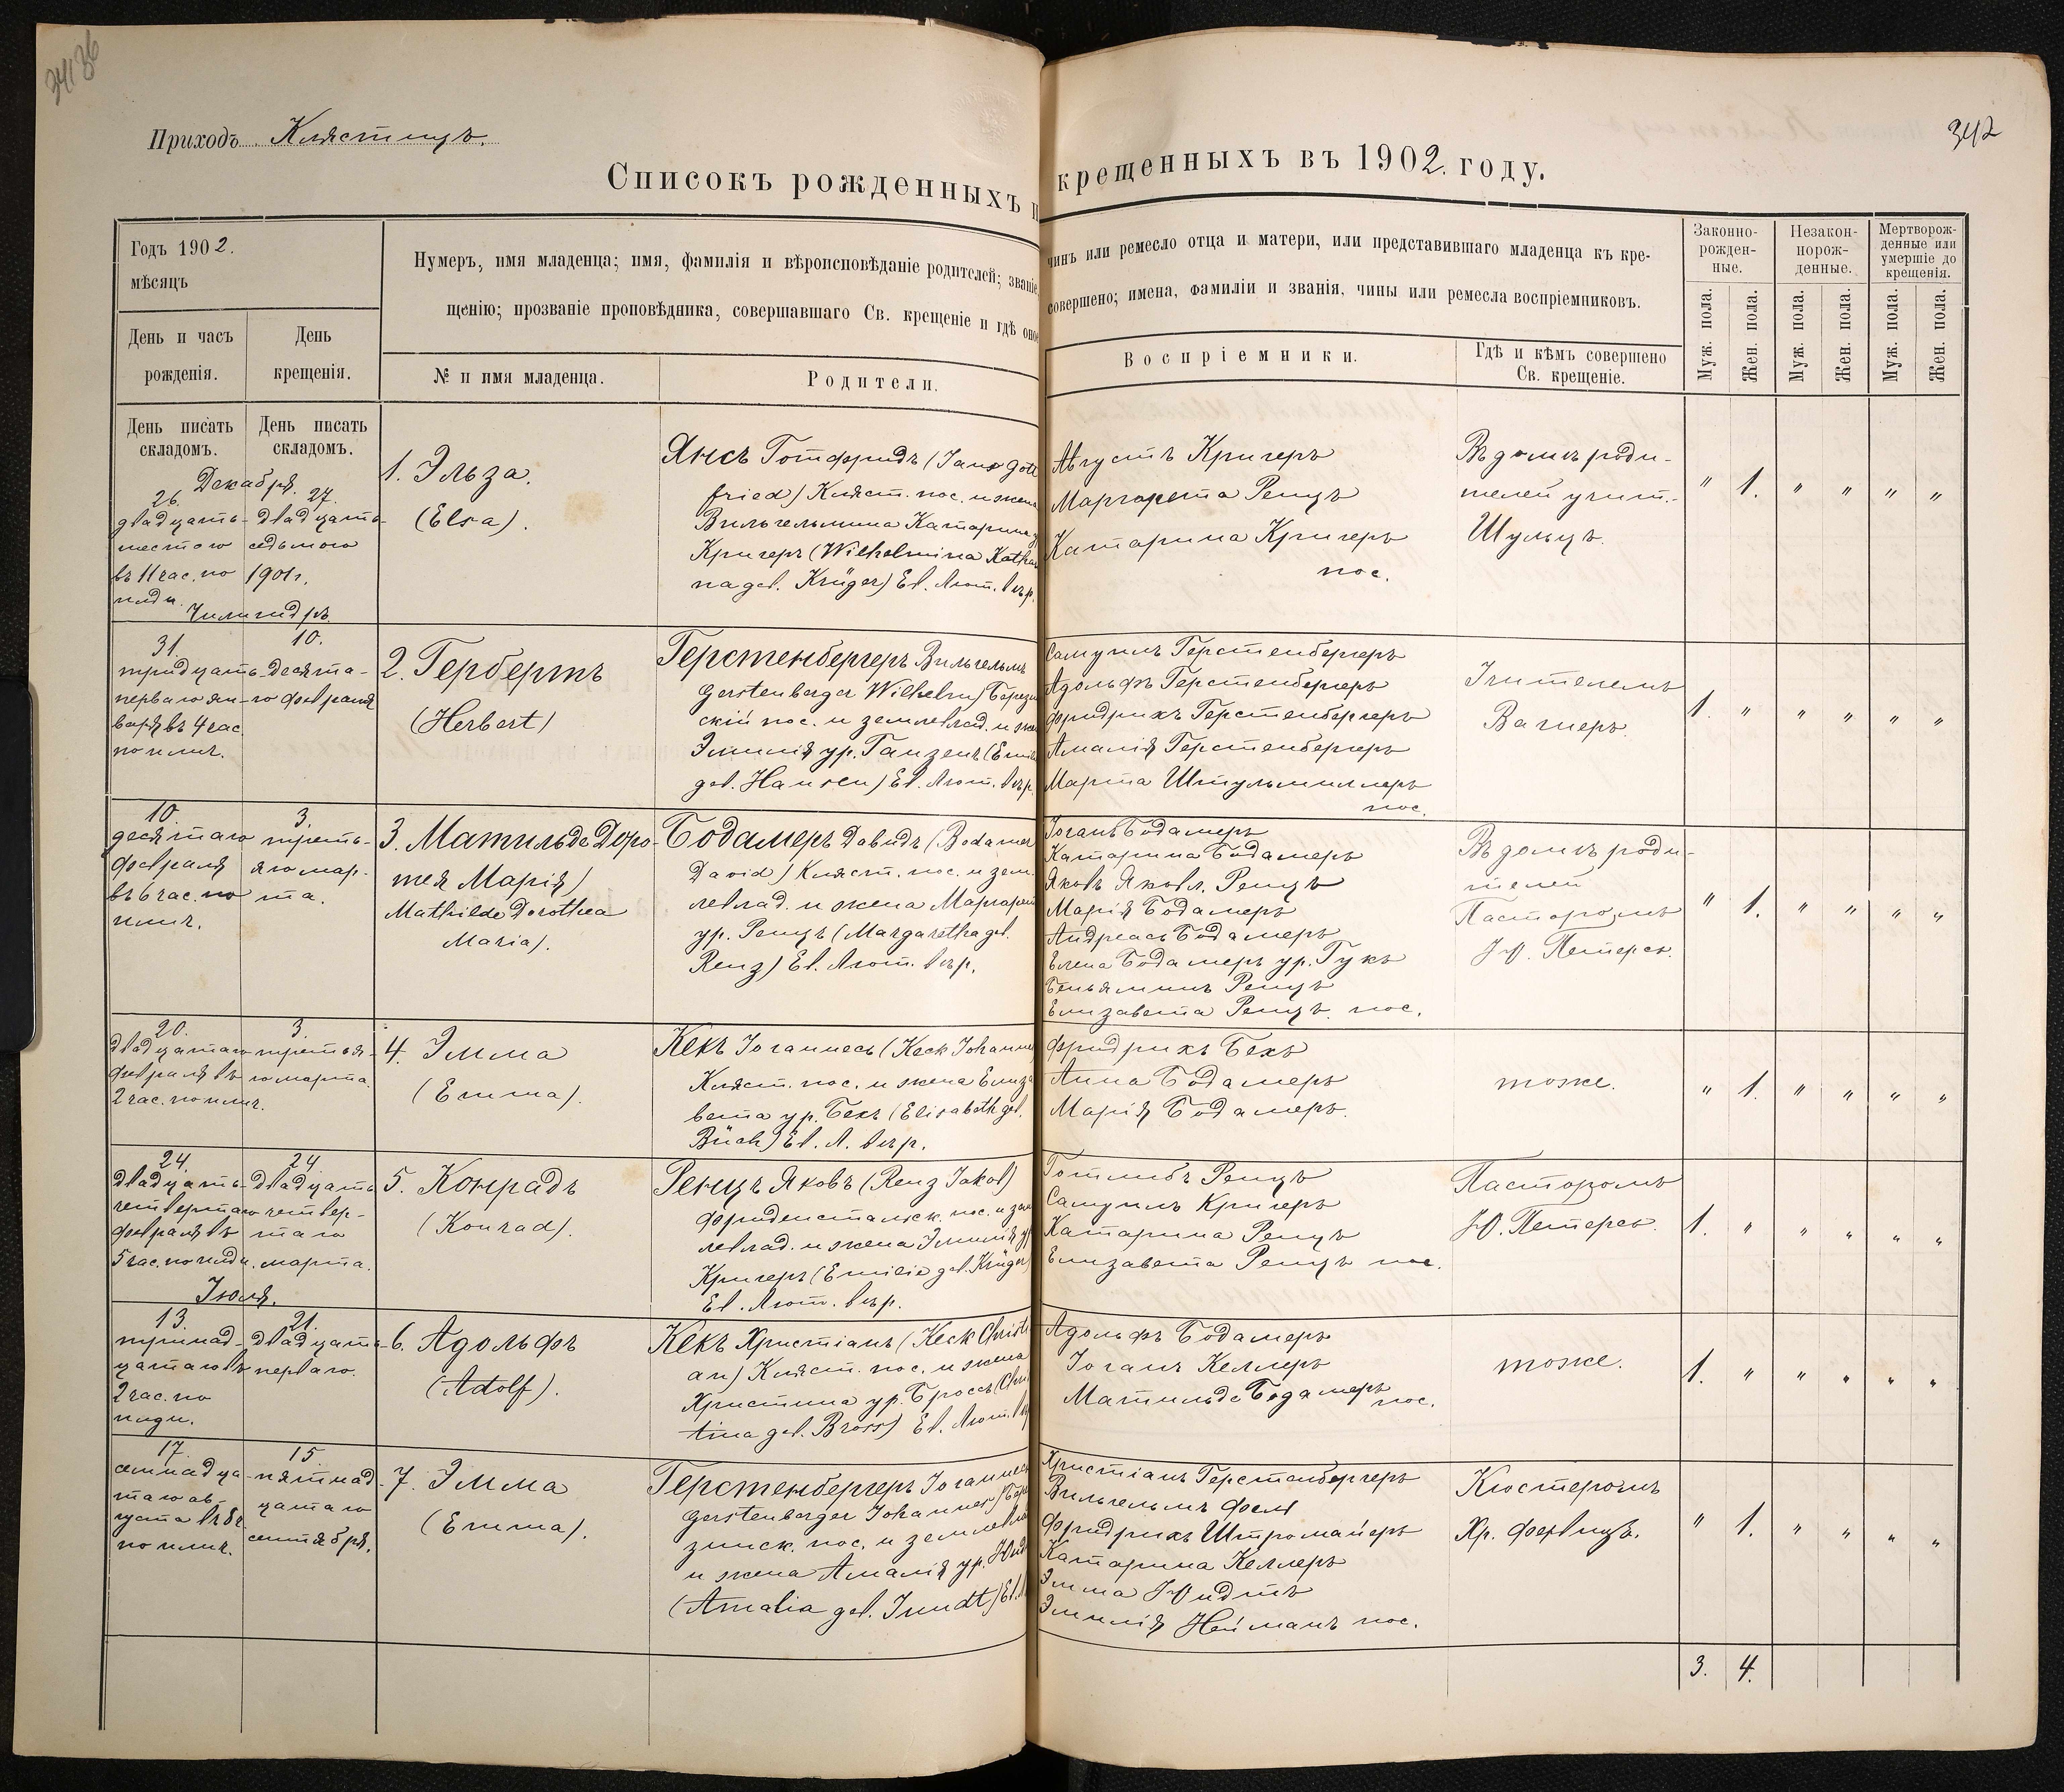 34136
342
Приходъ Клястицъ.
Списокъ рожденныхъ и крещенныхъ въ 1902. году.
Годъ 1902.
мѣсяцъ
День и часъ
рожденія.
День
крещенія.
Нумеръ, имя младенца; имя, фамилія и вѣроисповѣданіе родителей; званіе, чинъ или ремесло отца и матери, или представившаго младенца къ кре-
щенію; прозваніе проповѣдника, совершавшаго Св. крещеніе и гдѣ оное совершено; имена, фамиліи и званія, чины или ремесла воспріемниковъ.
№ и имя младенца.
Родители.
Воспріемники.
Гдѣ и кѣмъ совершено
Св. крещеніе.
Законно-
рожден-
ные.
Незакон-
норож-
денные.
Мертворож-
денные или
умершіе до
крещенія.
Муж. пола.
Жен. пола.
Муж. пола.
Жен. пола.
Муж. пола.
Жен. пола.
День писать
складомъ.
День писать
складомъ.
Декабря.
26.
двадцать-
шестого
въ 11 час. по
полд.
27.
двадцать-
седьмого
1901 г.
1. Эльза.
(Elsa).
Янсъ Готфридъ (Jans Gott
fried) Кляст. пос. и жена
Вильгельмина Катарина
Кригеръ (Wilhelmina Katha
na geb. Krüger) Ев. Лют. вѣр.
Августъ Кригеръ
Маргарета Ренцъ
Катарина Кригеръ
пос.
Въ домѣ роди-
телей учит.
Шульцъ.
" 1. " " " "
31.
тридцать-
перваго ян-
варя въ 4 час.
получ.
10.
десята-
го февраля
2. Гербертъ
(Herbert)
Герстенбергеръ Вильгельмъ
Gerstenberger Wilhelm) Берези
скій пос. и землевлад. и жен
Эмилія ур. Ганзенъ (Emili
geb. Hansen) Ев. Лют. вѣр.
Самуилъ Герстенбергеръ
Адольфъ Герстенбергеръ
Фридрихъ Герстенбергеръ
Амалія Герстенбергеръ
Марта Штульмиллеръ
пос.
Учителемъ
Вагнеръ.
1. " " " " "
10.
десятаго
февраля
въ 6 час. по
полн.
3.
треть-
яго мар-
та.
3. Матильда Доро-
тея Марія)
Mathilde Dorothea
Maria).
Бодамеръ Давидъ (Bodamer
David) Кляст. пос. и зем.
левлад. и жена Маргарет
ур. Ренцъ (Margaretha geb.
Renz) Ев. Лют. вѣр.
Іоганъ Бодамеръ
Катарина Бодамеръ
Яковъ Яковл. Ренцъ
Марія Бодамеръ
Андреасъ Бодамеръ
Елена Бодамеръ ур. Гукъ
Беньяминъ Ренцъ
Елизавета Ренцъ. пос.
Въ домѣ роди-
телей
Пасторомъ
Ю. Петерсъ.
" 1. " " " "
20.
двадцатаго
февраля въ
2 час. полн.
3.
третья-
го марта.
4. Эмма
(Emma).
Кекъ Іоганнесъ (Keck Johanne
Кляст. пос. и жена Елиза
вета ур. Бехъ (Elisabeth geb.
Büch) Ев. Л. вѣр.
Фридрихъ Бехъ
Анна Бодамеръ
Марія Бодамеръ.
тоже.
" 1. " " " "
24.
двадцать-
четвертаго
февраля въ
5 час. по полд.
24.
двадцать
четвер-
таго
марта.
5. Конрадъ
(Konrad).
Ренцъ Яковъ (Renz Jakob)
Фриденстальск. пос. и зем
левлад. и жена Эмилія ур
Кригеръ (Emilie geb. Krüger)
Ев. Лют. вѣр.
Готлибъ Ренцъ
Самуилъ Кригеръ
Катарина Ренцъ
Елизавета Ренцъ пос.
Пасторомъ
Ю. Петерсъ.
1. " " " " "
Іюля.
13.
тринад-
цатаго въ
2 час. по
полд.
21.
двадцать-
перваго.
6. Адольфъ
(Adolf).
Кекъ Христіанъ (Keck Christi
an) Кляст. пос. и жена
Христина ур. Бросъ (Chris
tina geb. Bross) Ев. Лют. вѣр
Адольфъ Бодамеръ
Іоганъ Келлеръ
Матильда Бодамеръ
пос.
тоже.
1. " " " " "
17.
семнадца-
таго ав-
густа въ 8 ч.
полн.
15.
пятнад-
цатаго
сентября.
7. Эмма
(Emma).
Герстенбергеръ Іоганнес
Gerstenberger Johannes) Бере
зинск. пос. и землевла
и жена Амалія ур. Юнд
(Amalia geb. Jundt) Ев. Л
Христіанъ Герстенбергеръ
Вильгельмъ Фелъ
Фридрихъ Штромайеръ
Катарина Келлеръ
Эмма Юндтъ
Эмилія Нейманъ пос.
Кюстеромъ
Хр.
" 1. " " " "
3. 4.